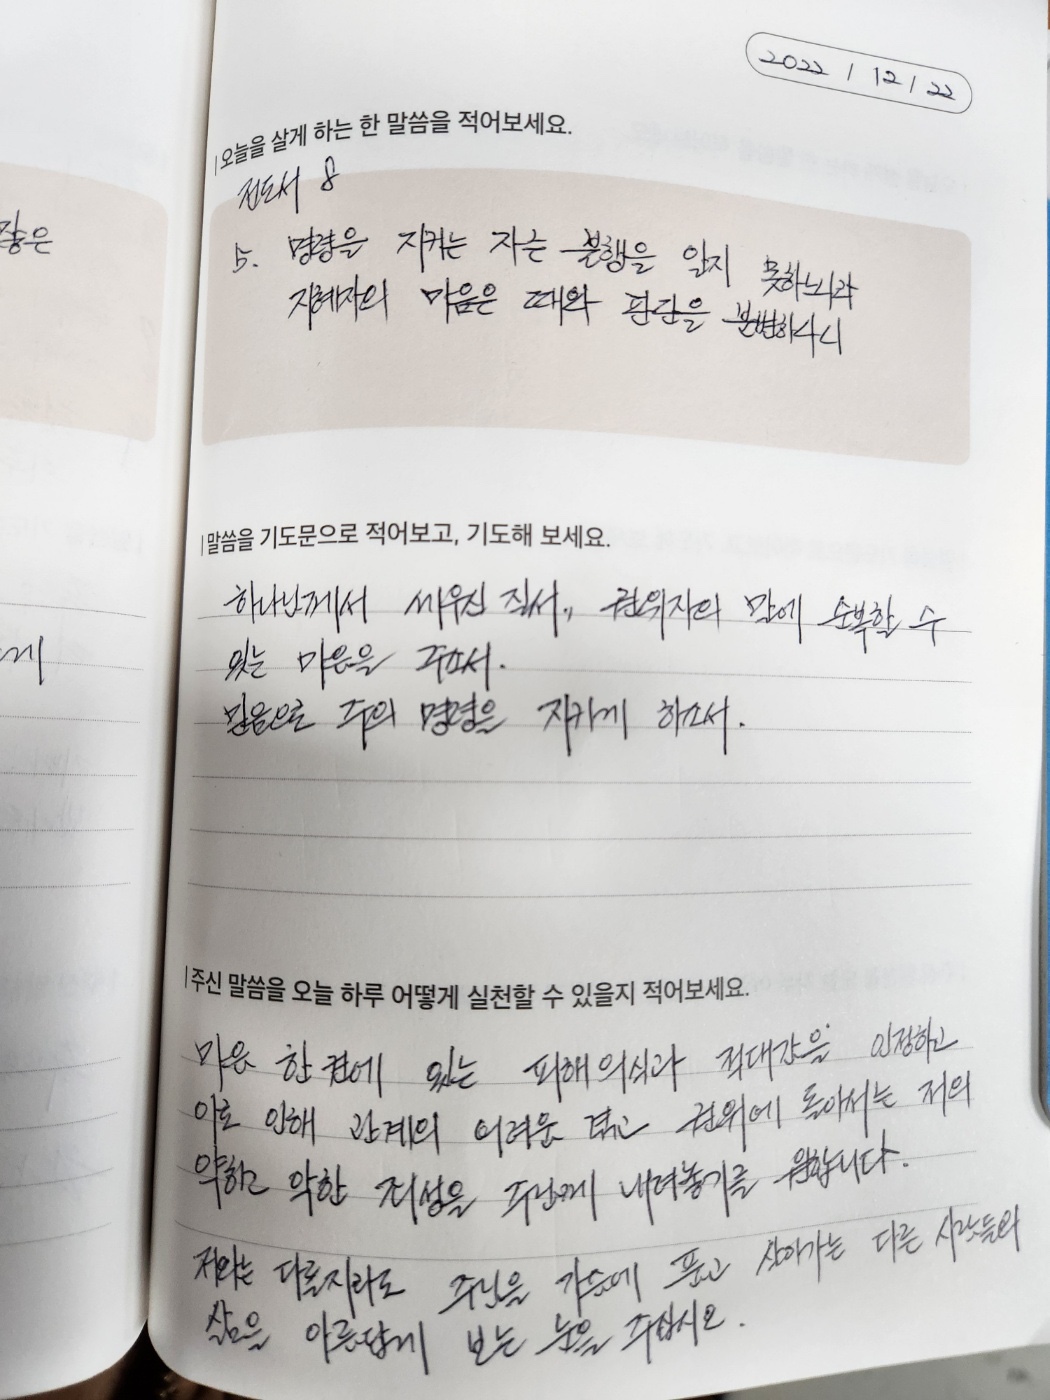 2022 / 12 / 22
오늘을 살게 하는 한 말씀을 적어보세요.
전도서 8
좋은
5. 명령을 지키는 자는 불행을 알지 못하느니라
지혜자의 마음은 때와 판단을 분변하나니
말씀을 기도문으로 적어보고, 기도해 보세요.
하나님께서 세우신 질서, 권위자의 말에 순복할 수
있는 마음을 주소서.
믿음으로 주의 명령을 지키게 하소서.
주신 말씀을 오늘 하루 어떻게 실천할 수 있을지 적어보세요.
마음 한 켠에 있는 피해의식과 적대감을 인정하고
이로 인해 관계의 어려움 겪고 권위에 돌아서는 저의
약하고 악한 죄성을 주님께 내려놓기를 원합니다.
저와는 다를지라도 주님을 가슴에 품고 살아가는 다른 사람들의
삶을 아름답게 보는 눈을 주십시오.